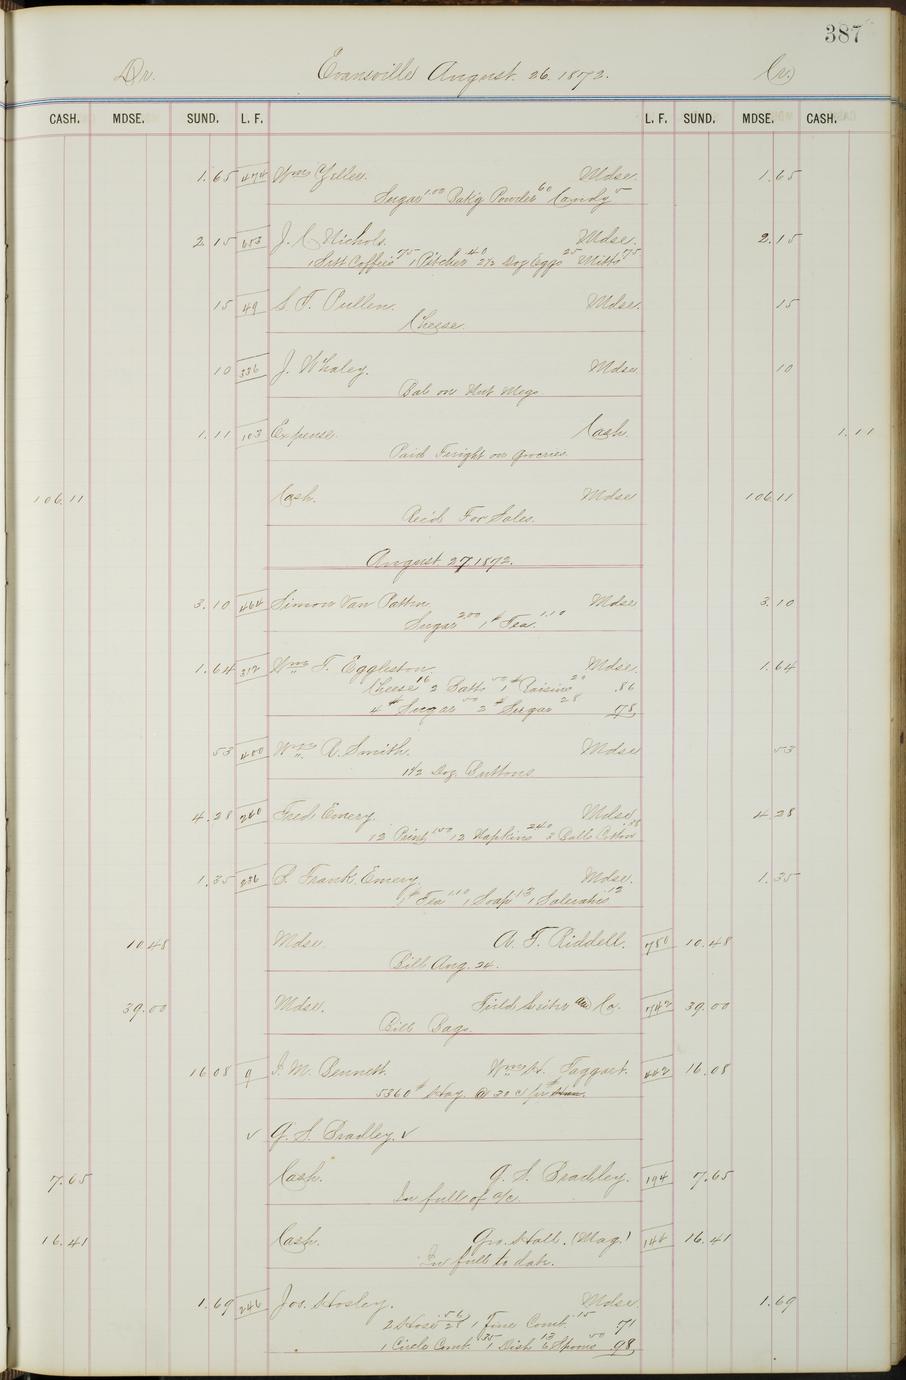 387
Dr. Evansville August. 26. 1872. Cr.
CASH. MDSE. SUND. L. F. L. F. SUND. MDSE. CASH.
1.65 474 Wm Mdse. 1.65
Sugar 1.00 Bak'g Powder 60 Candy 5
2.15 653 J. C. Nichols. Mdse. 2.15
1 Sett Coffees 75 1 Pitcher 40 2½ Doz Eggs 25 Mitts 75
15 49 S. T. Pullen. Mdse. 15
Cheese.
10 336 J. Whaley. Mdse 10
Bal on Nut Megs
1.11 103 Expense. Cash. 1.11
Paid Freight on Groceries.
106.11 Cash. Mdse 106.11
Rec'd For Sales.
August 27 1872.
3.10 464 Simon Van Patten Mdse 3.10
Sugar 2.00 1# Tea. 1.10
1.64 312 Wm T. Eggleston. Mdse. 1.64
Cheese 16 2 Batts 50 1# Raisins 20 .86
4# Sugar 50 2# Sugar 28 78
53 400 Wm R. Smith. Mdse 53
1½ Doz. Buttons
4.28 240 Fred Emery. Mdse. 4.28
12 Print 1.00 12 Napkins 2.40 3 Balls Cotton 88
1.35 236 S. Frank. Emery. Mdse. 1.35
1# Tea 1.10 1 Soap 13 1 Saleratus 12
10.48 Mdse. A. T. Riddell. 750 10.48
Bill Aug. 24.
39.00 Mdse. Field Leiter & Co. 742 39.00
Bill Bags.
16 08 9 I. M. Bennett. Wm H. Taggart. 442 16.08
5360# Hay. @ 30 c/ pr
✓ G. S. Bradley. ✓
7.65 Cash. G. S. Bradley. 194 7.65
In full of a/c.
16.41 Cash. Geo. Hall. (Mag.) 144 16.41
In full to date.
1.69 246 Jos. Hosley. Mdse. 1.69
2 Hose 28 56 1 Fine Comb. 15 71
1 Circle Comb. 35 1 Dish 13 6 Spoons 50 .98